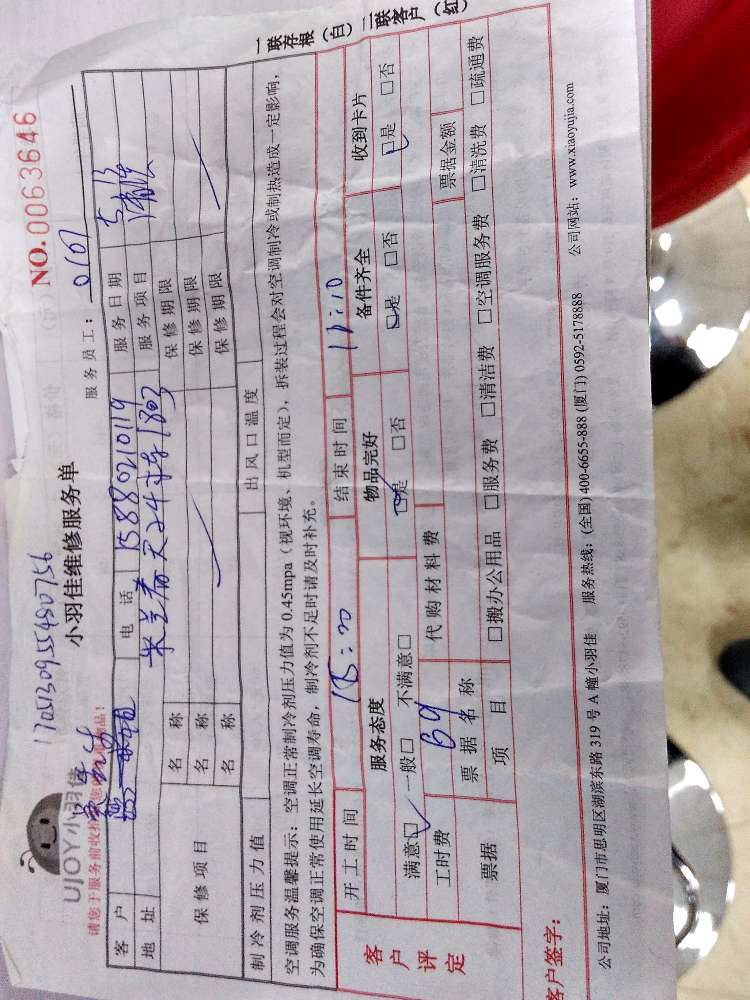 一联存根（白） 二联客户（红）
NO.0063646
1705130955480756
UJOY小羽佳
小羽佳维修服务单
服务员工：0101
客户 电话 15880210119 服务日期
地址 米兰春天24幢1803 服务项目 清洗
保修项目 名称 保修期限
名称 保修期限
名称 保修期限
制冷剂压力值 出风口温度
空调服务温馨提示：空调正常制冷剂压力值为0.45mpa（视环境、机型而定），拆装过程会对空调制冷或制热造成一定影响，
为确保空调正常使用延长空调寿命，制冷剂不足时请及时补充。
开工时间 结束时间 17:10
客户评定 服务态度 物品完好 备件齐全 收到卡片
满意□ 一般□ 不满意□ □是 □否 □是 □否 □是 □否
工时费 69 代购材料费
票据 票据名称 票据金额
项目 □搬办公用品 □服务费 □清洁费 □空调服务费 □清洗费 □疏通费
客户签字：
公司地址：厦门市思明区湖滨东路319号A幢小羽佳 服务热线：(全国)400-6655-888 (厦门)0592-5178888 公司网站：www.xiaoyujia.com